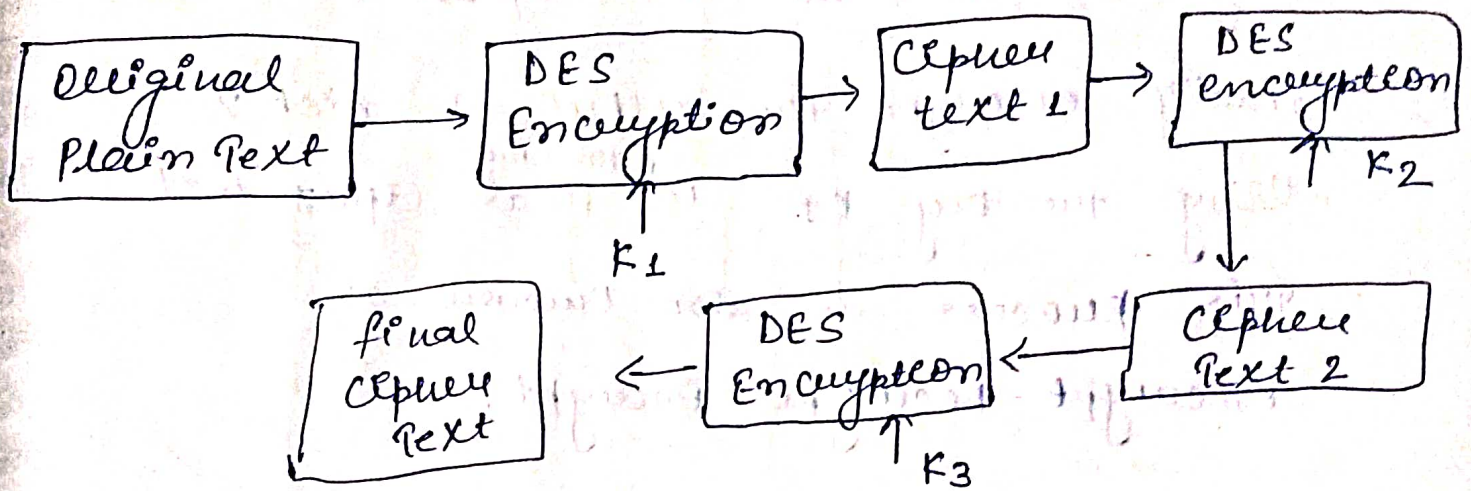 Original
Plain Text
DES
Encryption
K1
Cipher
text 1
DES
encryption
K2
Cipher
Text 2
DES
Encryption
K3
final
Cipher
Text